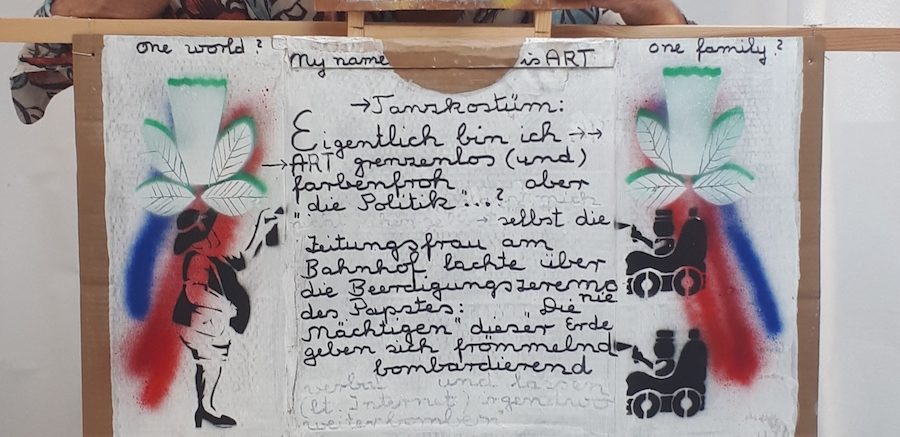 one world?
My name is ART
one family?
→Tanzkostüm:
Eigentlich bin ich →→
→ART grenzenlos (und)
farbenfroh aber
"die Politik"...?
→ selbst die
Zeitungsfrau am
Bahnhof lachte über
die Beerdigungszeremonie
des Papstes: "Die
Mächtigen" dieser Erde
geben sich frömmelnd
bombardierend
und lassen
(lt. Internet) irgendwo
weiterbomben"